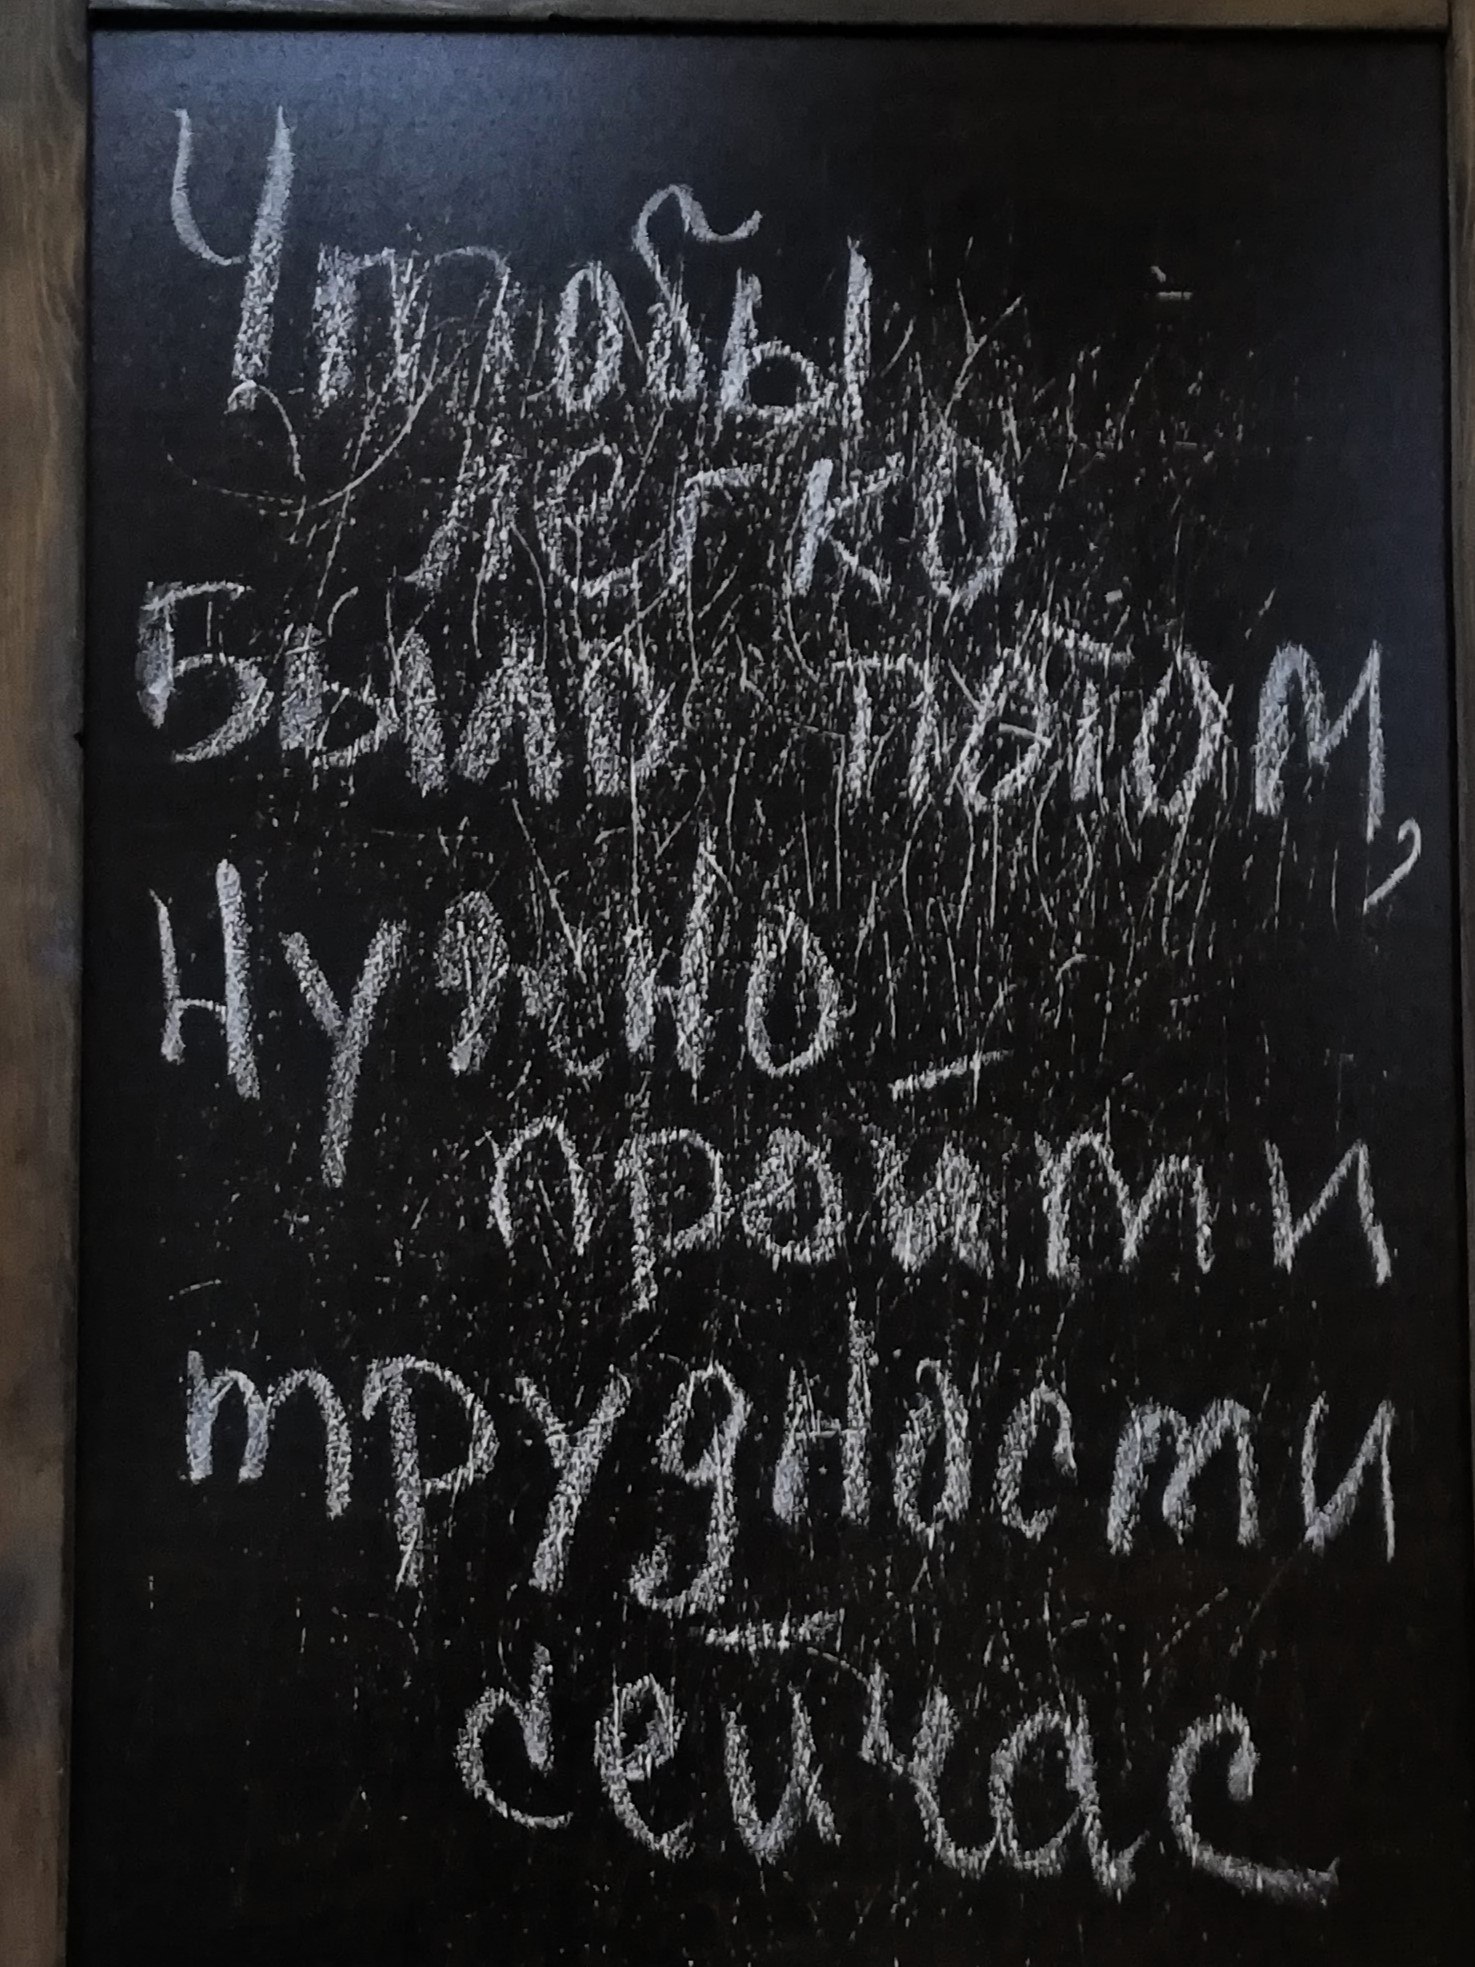 Чтобы
легко
Было потом,
Нужно
пройти
трудности
сейчас